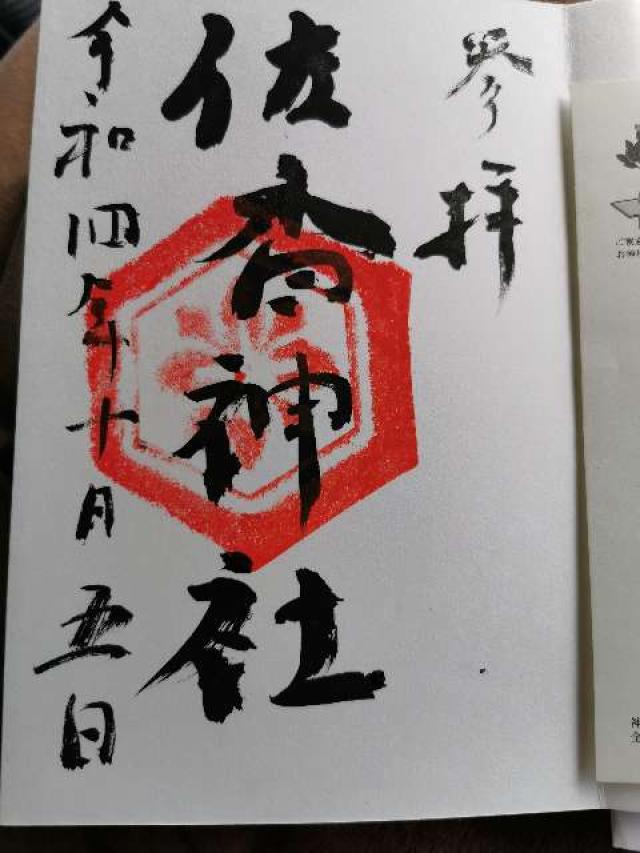 参拝
佐香神社
令和四年十月五日